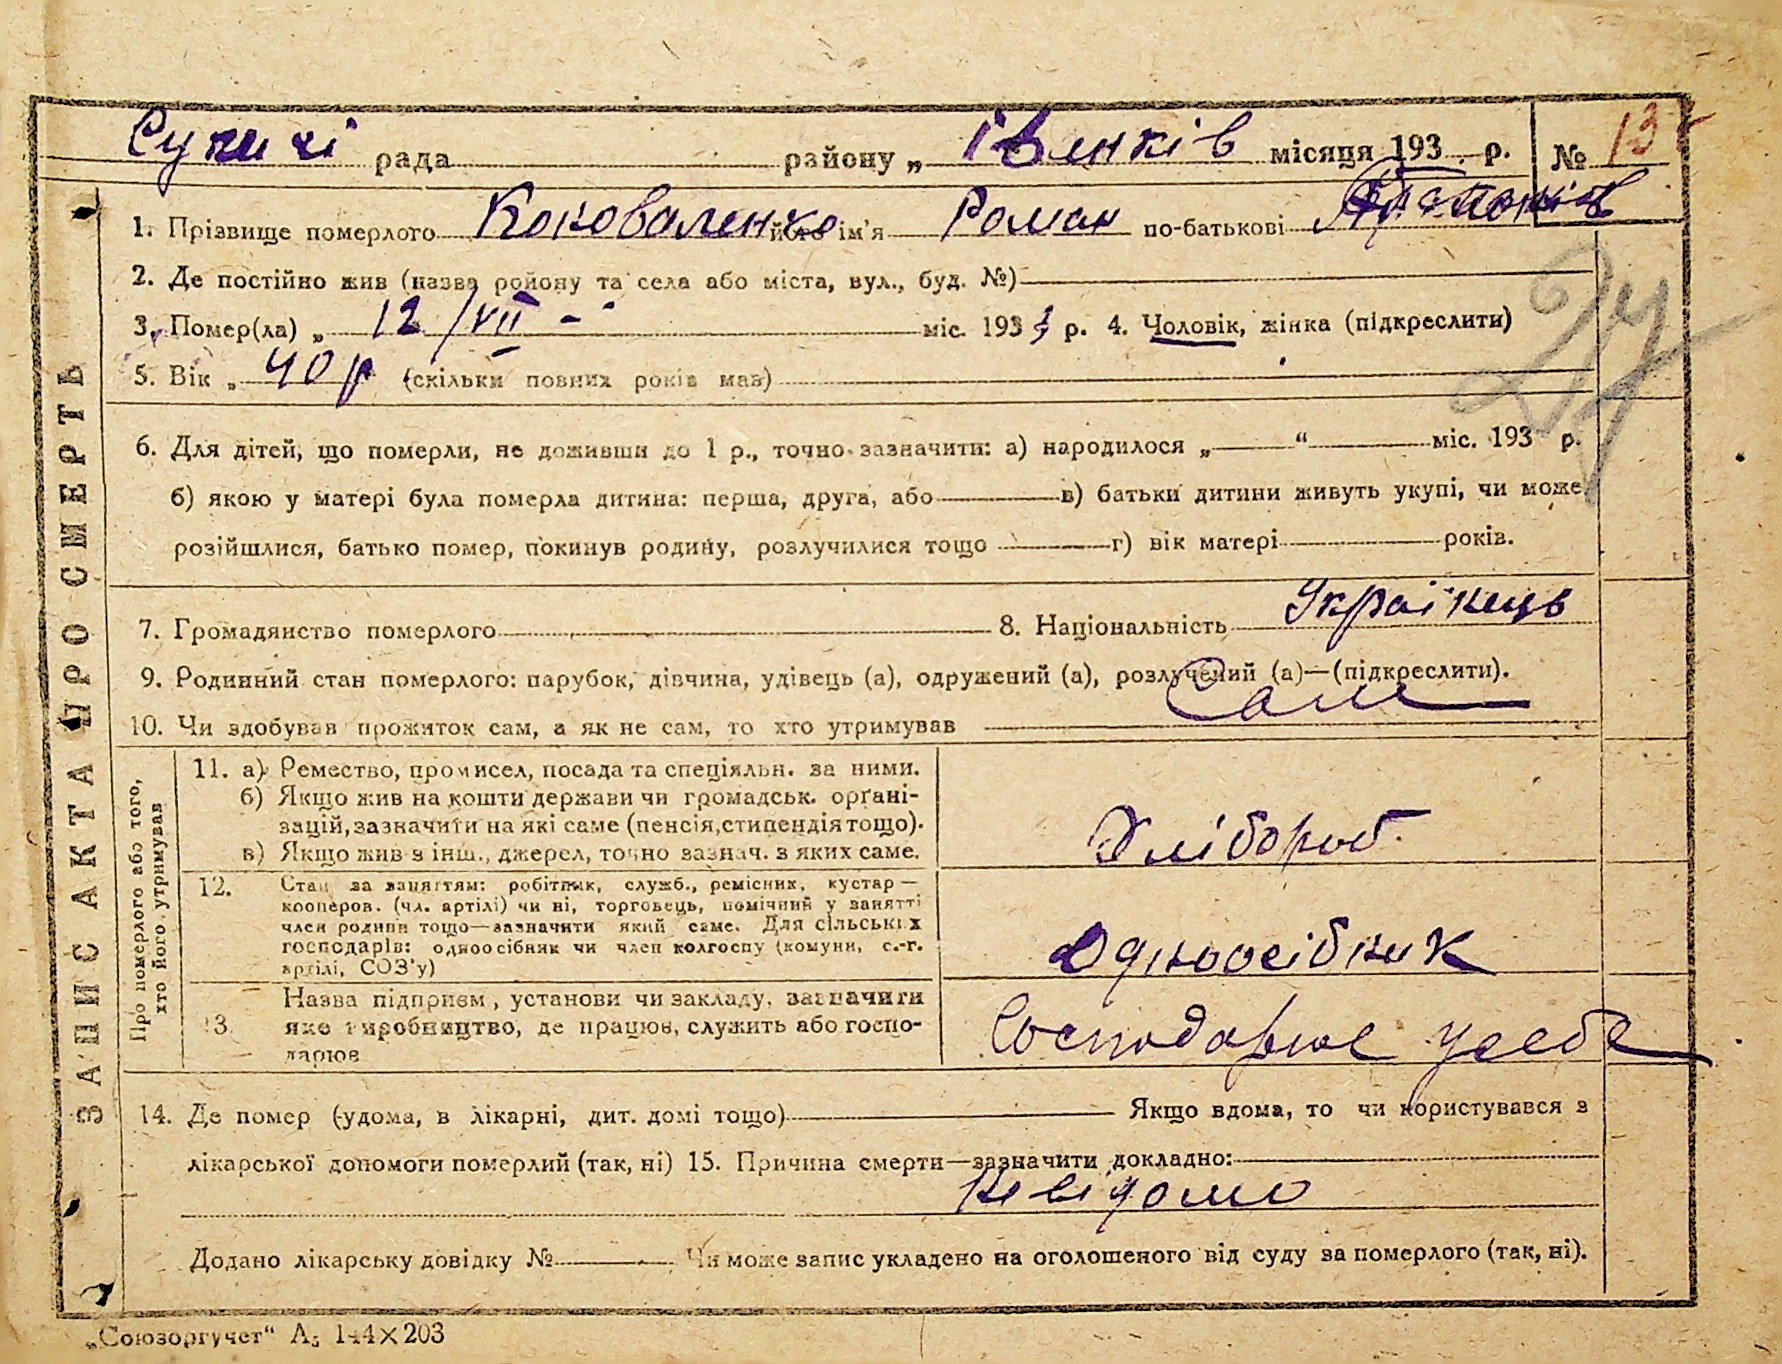 Сукачі рада району „ Івінків місяця 193 р. № 13
1. Прізвище померлого Коноваленко його ім'я Роман по-батькові
2. Де постійно жив (назва району та села або міста, вул., буд. №)
3. Помер(ла) „ 12/VII - міс. 1933 р. 4. Чоловік, жінка (підкреслити)
5. Вік „ 40 р (скільки повних років мав)
6. Для дітей, що померли, не доживши до 1 р., точно зазначити: а) народилося „ “ міс. 193 р.
б) якою у матері була померла дитина: перша, друга, або в) батьки дитини живуть укупі, чи може
розійшлися, батько помер, покинув родину, розлучилися тощо г) вік матері років.
7. Громадянство померлого 8. Національність Українець
9. Родинний стан померлого: парубок, дівчина, удівець (а), одружений (а), розлучений (а)—(підкреслити).
10. Чи здобував прожиток сам, а як не сам, то хто утримував Сам
11. а) Ремество, промисел, посада та спеціяльн. за ними.
б) Якщо жив на кошти держави чи громадськ. органі-
зацій, зазначити на які саме (пенсія, стипендія тощо).
в) Якщо жив з інш., джерел, точно зазнач. з яких саме.
Хлібороб.
12. Стан за заняттям: робітник, служб., ремісник, кустар—
кооперов. (чл. артілі) чи ні, торговець, помічний у занятті
член родини тощо—зазначити який саме. Для сільських
господарів: одноосібник чи член колгоспу (комуни, с.-г.
артілі, СОЗ'у)
Одноосібник
13. Назва підприєм, установи чи закладу, зазначити
яке виробництво, де працює, служить або госпо-
дарює
Господарює усебе
14. Де помер (удома, в лікарні, дит. домі тощо) Якщо вдома, то чи користувався з
лікарської допомоги померлий (так, ні) 15. Причина смерти—зазначити докладно:
Невідомо
Додано лікарську довідку № Чи може запис укладено на оголошеного від суду за померлого (так, ні).
ЗАПИС АКТА ПРО СМЕРТЬ
Про померлого або того,
хто його утримував
„Союзоргучет“ А5 144×203